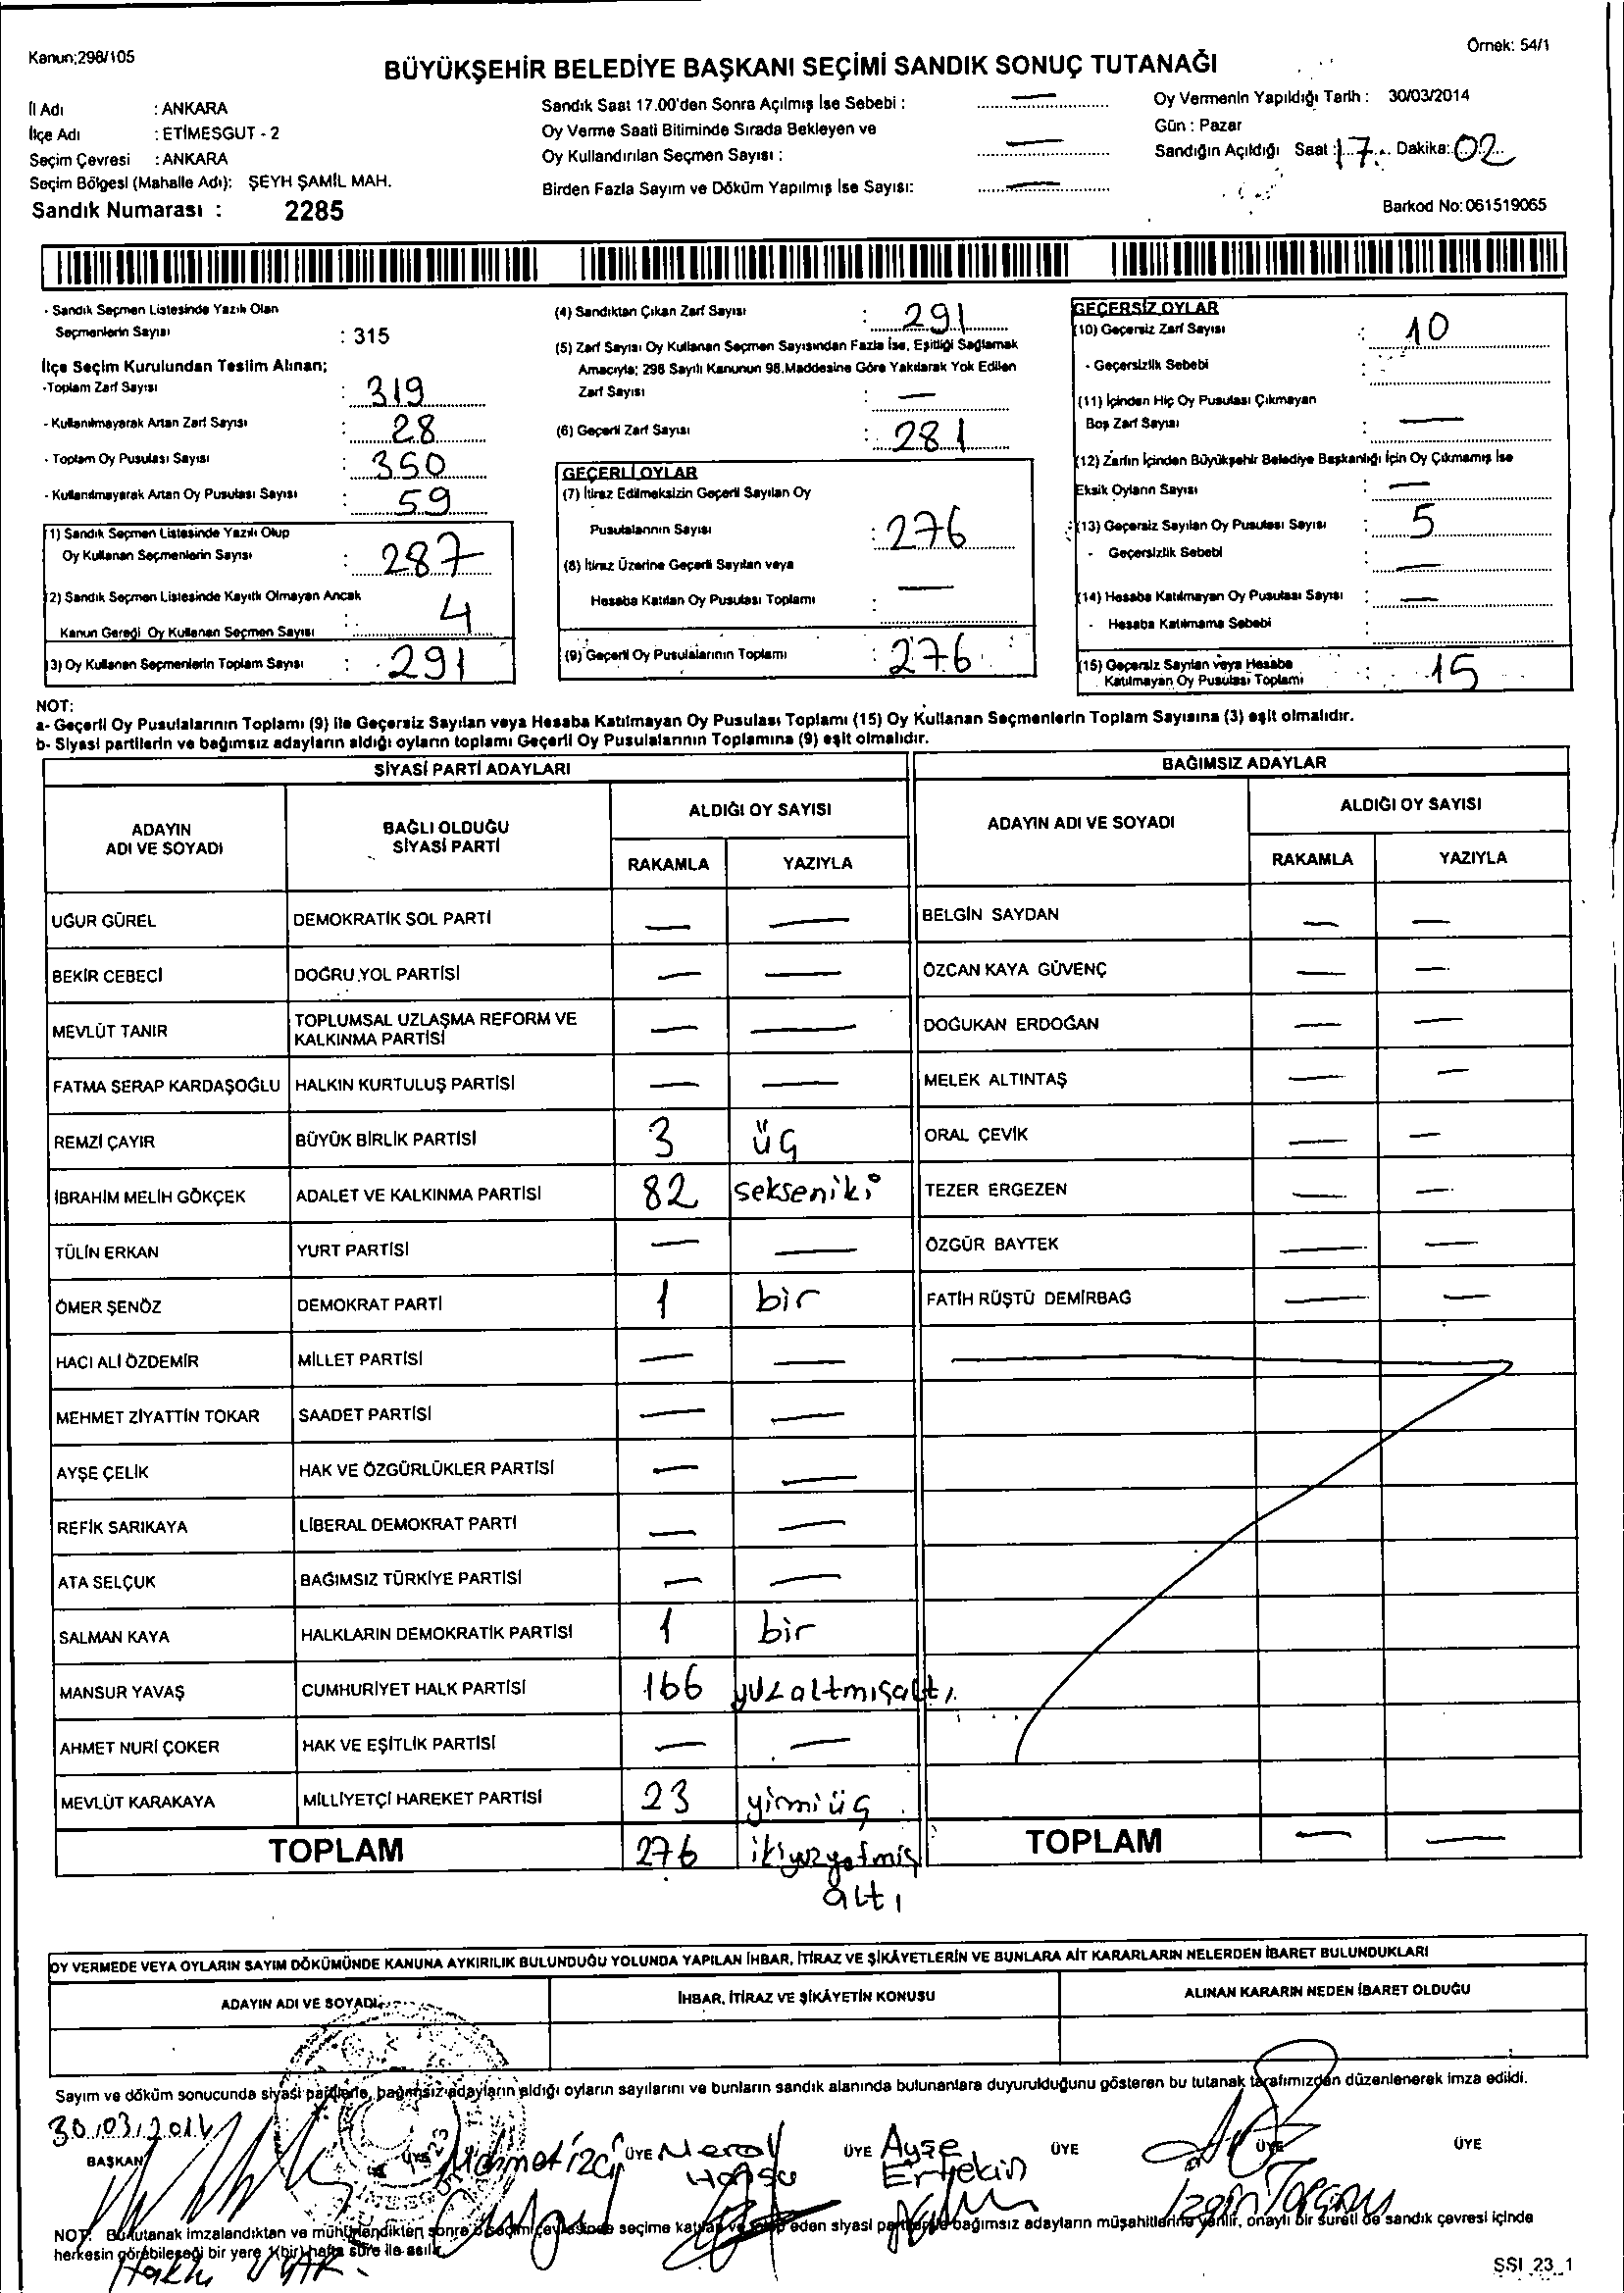 Kanun;298/105
Örnek: 54/1
BÜYÜKŞEHİR BELEDİYE BAŞKANI SEÇİMİ SANDIK SONUÇ TUTANAĞI
İl Adı : ANKARA
İlçe Adı : ETİMESGUT - 2
Seçim Çevresi : ANKARA
Seçim Bölgesi (Mahalle Adı): ŞEYH ŞAMİL MAH.
Sandık Numarası : 2285
Sandık Saat 17.00'den Sonra Açılmış İse Sebebi : —
Oy Verme Saati Bitiminde Sırada Bekleyen ve
Oy Kullandırılan Seçmen Sayısı : —
Birden Fazla Sayım ve Döküm Yapılmış İse Sayısı: —
Oy Vermenin Yapıldığı Tarih : 30/03/2014
Gün : Pazar
Sandığın Açıldığı Saat : 17 Dakika: 02
Barkod No: 061519065
- Sandık Seçmen Listesinde Yazılı Olan
Seçmenlerin Sayısı : 315
İlçe Seçim Kurulundan Teslim Alınan;
-Toplam Zarf Sayısı : 319
- Kullanılmayarak Artan Zarf Sayısı : 28
- Toplam Oy Pusulası Sayısı : 350
- Kullanılmayarak Artan Oy Pusulası Sayısı : 59
(1) Sandık Seçmen Listesinde Yazılı Olup
Oy Kullanan Seçmenlerin Sayısı : 287
(2) Sandık Seçmen Listesinde Kayıtlı Olmayan Ancak
Kanun Gereği Oy Kullanan Seçmen Sayısı : 4
(3) Oy Kullanan Seçmenlerin Toplam Sayısı : 291
(4) Sandıktan Çıkan Zarf Sayısı : 291
(5) Zarf Sayısı Oy Kullanan Seçmen Sayısından Fazla İse, Eşitliği Sağlamak
Amacıyla; 298 Sayılı Kanunun 98.Maddesine Göre Yakılarak Yok Edilen
Zarf Sayısı : —
(6) Geçerli Zarf Sayısı : 281
GEÇERLİ OYLAR
(7) İtiraz Edilmeksizin Geçerli Sayılan Oy
Pusulalarının Sayısı : 276
(8) İtiraz Üzerine Geçerli Sayılan veya
Hesaba Katılan Oy Pusulası Toplamı : —
(9) Geçerli Oy Pusulalarının Toplamı : 276
GEÇERSİZ OYLAR
(10) Geçersiz Zarf Sayısı : 10
- Geçersizlik Sebebi :
(11) İçinden Hiç Oy Pusulası Çıkmayan
Boş Zarf Sayısı : —
(12) Zarfın İçinden Büyükşehir Belediye Başkanlığı İçin Oy Çıkmamış İse
Eksik Oyların Sayısı : —
(13) Geçersiz Sayılan Oy Pusulası Sayısı : 5
- Geçersizlik Sebebi : —
(14) Hesaba Katılmayan Oy Pusulası Sayısı : —
- Hesaba Katılmama Sebebi :
(15) Geçersiz Sayılan veya Hesaba
Katılmayan Oy Pusulası Toplamı : 15
NOT:
a- Geçerli Oy Pusulalarının Toplamı (9) ile Geçersiz Sayılan veya Hesaba Katılmayan Oy Pusulası Toplamı (15) Oy Kullanan Seçmenlerin Toplam Sayısına (3) eşit olmalıdır.
b- Siyasi partilerin ve bağımsız adayların aldığı oyların toplamı Geçerli Oy Pusulalarının Toplamına (9) eşit olmalıdır.
SİYASİ PARTİ ADAYLARI
BAĞIMSIZ ADAYLAR
ADAYIN
ADI VE SOYADI
BAĞLI OLDUĞU
SİYASİ PARTİ
ALDIĞI OY SAYISI
RAKAMLA YAZIYLA
ADAYIN ADI VE SOYADI
ALDIĞI OY SAYISI
RAKAMLA YAZIYLA
UĞUR GÜREL DEMOKRATİK SOL PARTİ — — BELGİN SAYDAN — —
BEKİR CEBECİ DOĞRU YOL PARTİSİ — — ÖZCAN KAYA GÜVENÇ — —
MEVLÜT TANIR TOPLUMSAL UZLAŞMA REFORM VE
KALKINMA PARTİSİ — — DOĞUKAN ERDOĞAN — —
FATMA SERAP KARDAŞOĞLU HALKIN KURTULUŞ PARTİSİ — — MELEK ALTINTAŞ — —
REMZİ ÇAYIR BÜYÜK BİRLİK PARTİSİ 3 üç ORAL ÇEVİK — —
İBRAHİM MELİH GÖKÇEK ADALET VE KALKINMA PARTİSİ 82 sekseniki TEZER ERGEZEN — —
TÜLİN ERKAN YURT PARTİSİ — — ÖZGÜR BAYTEK — —
ÖMER ŞENÖZ DEMOKRAT PARTİ 1 bir FATİH RÜŞTÜ DEMİRBAĞ — —
HACI ALİ ÖZDEMİR MİLLET PARTİSİ — —
MEHMET ZİYATTİN TOKAR SAADET PARTİSİ — —
AYŞE ÇELİK HAK VE ÖZGÜRLÜKLER PARTİSİ — —
REFİK SARIKAYA LİBERAL DEMOKRAT PARTİ — —
ATA SELÇUK BAĞIMSIZ TÜRKİYE PARTİSİ — —
SALMAN KAYA HALKLARIN DEMOKRATİK PARTİSİ 1 bir
MANSUR YAVAŞ CUMHURİYET HALK PARTİSİ 166 yüzaltmışaltı
AHMET NURİ ÇOKER HAK VE EŞİTLİK PARTİSİ — —
MEVLÜT KARAKAYA MİLLİYETÇİ HAREKET PARTİSİ 23 yirmiüç
TOPLAM 276 ikiyüzyetmiş
altı
TOPLAM — —
OY VERMEDE VEYA OYLARIN SAYIM DÖKÜMÜNDE KANUNA AYKIRILIK BULUNDUĞU YOLUNDA YAPILAN İHBAR, İTİRAZ VE ŞİKÂYETLERİN VE BUNLARA AİT KARARLARIN NELERDEN İBARET BULUNDUKLARI
ADAYIN ADI VE SOYADI İHBAR, İTİRAZ VE ŞİKÂYETİN KONUSU ALINAN KARARIN NEDEN İBARET OLDUĞU
Sayım ve döküm sonucunda siyasi partilerle, bağımsız adayların aldığı oyların sayılarını ve bunların sandık alanında bulunanlara duyurulduğunu gösteren bu tutanak tarafımızdan düzenlenerek imza edildi.
30/03/2014
BAŞKAN ÜYE Mehmet ÜYE Meral ÜYE Ayşe ÜYE ÜYE ÜYE
Ertekin
NOT: Bu tutanak imzalandıktan ve mühürlendikten sonra o seçim çevresinde seçime katılan ve talep eden siyasi partilerle bağımsız adayların müşahitlerine verilir, onaylı bir sureti de sandık çevresi içinde
herkesin görebileceği bir yere 1(bir) hafta süre ile asılır.
SSI_23_1